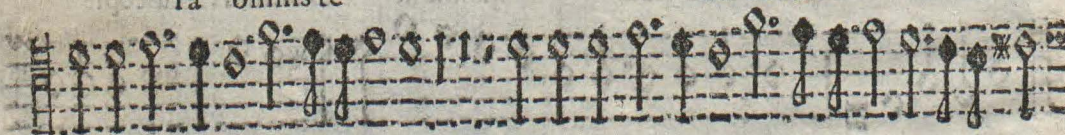 ra omnis te